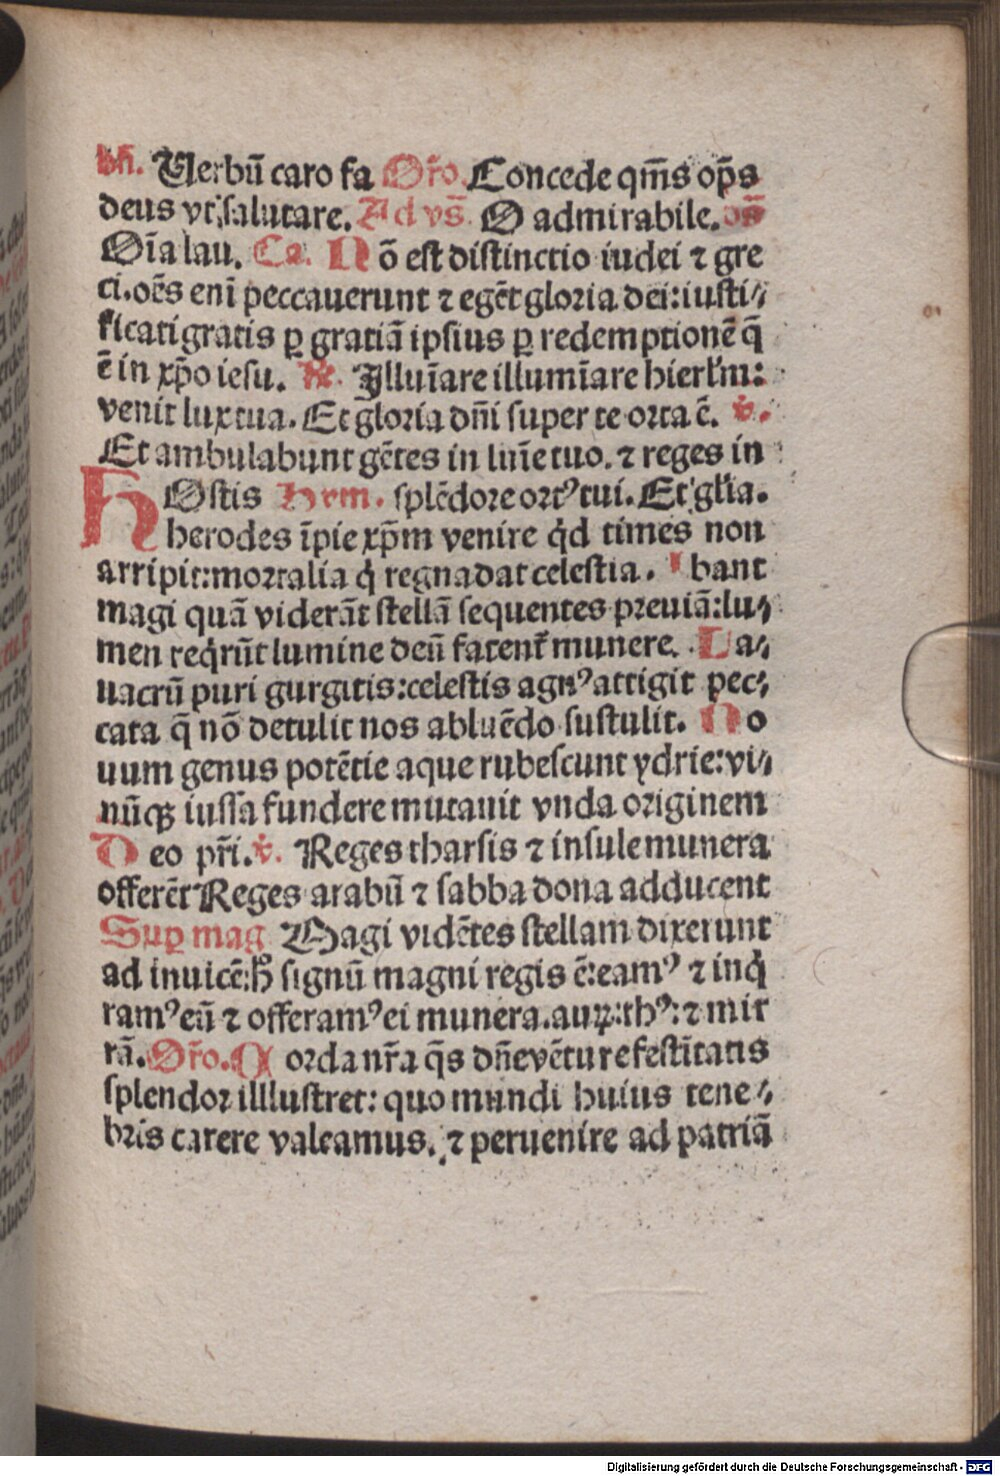 bn̄. Uerbū caro fa Or̄o. Concede qm̄s op̄s
deus vt salutare. Ad vs̄. O admirabile. ps̄
Oīa lau. Ca. Nō est distinctio iudei ⁊ gre
ci. oēs enī peccauerunt ⁊ egēt gloria dei: iusti⸗
ficati gratis ꝑ gratiā ipsius ꝑ redemptionē q̄
ē in xp̄o iesu. ℟. Illuīare illumīare hierl̄m:
venit lux tua. Et gloria dn̄i super te orta ē. ℣.
Et ambulabunt gētes in lūīe tuo. ⁊ reges in
HOstis Hym. splēdore ortꝰ tui. Et gl̄ia.
herodes īpie xp̄m venire qͥd times non
arripit: mortalia qͥ regna dat celestia. Ibant
magi quā viderāt stellā sequentes preuiā: lu⸗
men reqͥrūt lumine deū fatent᷑ munere. La⸗
uacrū puri gurgitis: celestis agnꝰ attigit pec⸗
cata q̄ nō detulit nos abluēdo sustulit. No
uum genus potētie aque rubescunt ydrie: vi⸗
nūqꝫ iussa fundere mutauit vnda originem
Deo pr̄i. ℣. Reges tharsis ⁊ insule munera
offerēt Reges arabū ⁊ sabba dona adducent
Suꝑ mag Magi vidētes stellam dixerunt
ad inuicē: h̄ signū magni regis ē: eamꝰ ⁊ inqͥ
ramꝰ eū ⁊ offeramꝰ ei munera. auꝝ: thꝰ: ⁊ mir
rā. Or̄o. Corda nr̄a q̄s dn̄e vēture festītatis
splendor illlustret: quo mundi huius tene⸗
bris carere valeamus. ⁊ peruenire ad patriā
Digitalisierung gefördert durch die Deutsche Forschungsgemeinschaft - DFG